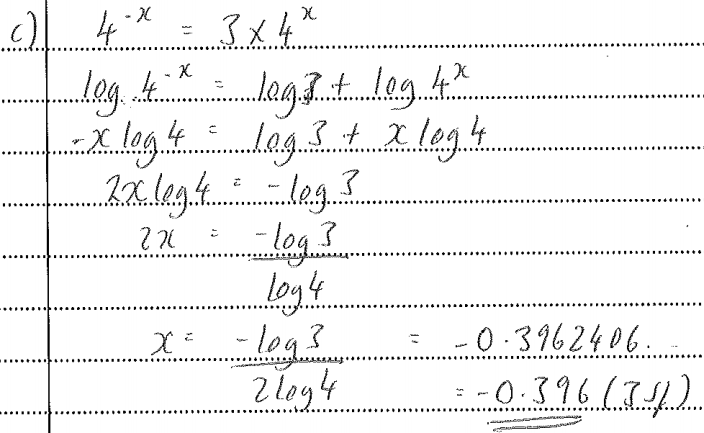 c) 4^-x = 3 × 4^x
log 4^-x = log 3 + log 4^x
-x log 4 = log 3 + x log 4
2x log 4 = -log 3
2x = -log 3 / log 4
x = -log 3 / 2 log 4 = -0.3962406..
= -0.396 (3 sf)